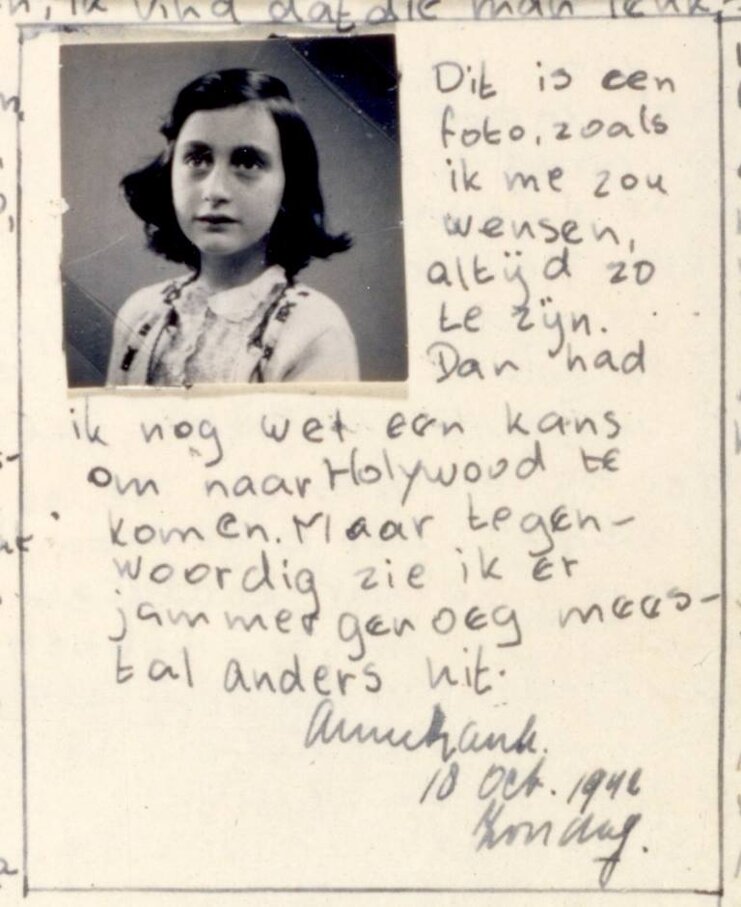 ik vind dat die man leuk
Dit is een
foto, zoals
ik me zou
wensen,
altijd zo
te zijn.
Dan had
ik nog wel een kans
om naar Holywood te
komen. Maar tegen-
woordig zie ik er
jammer genoeg mees-
tal anders uit.
Annefrank.
18 Oct. 1942
Zondag.